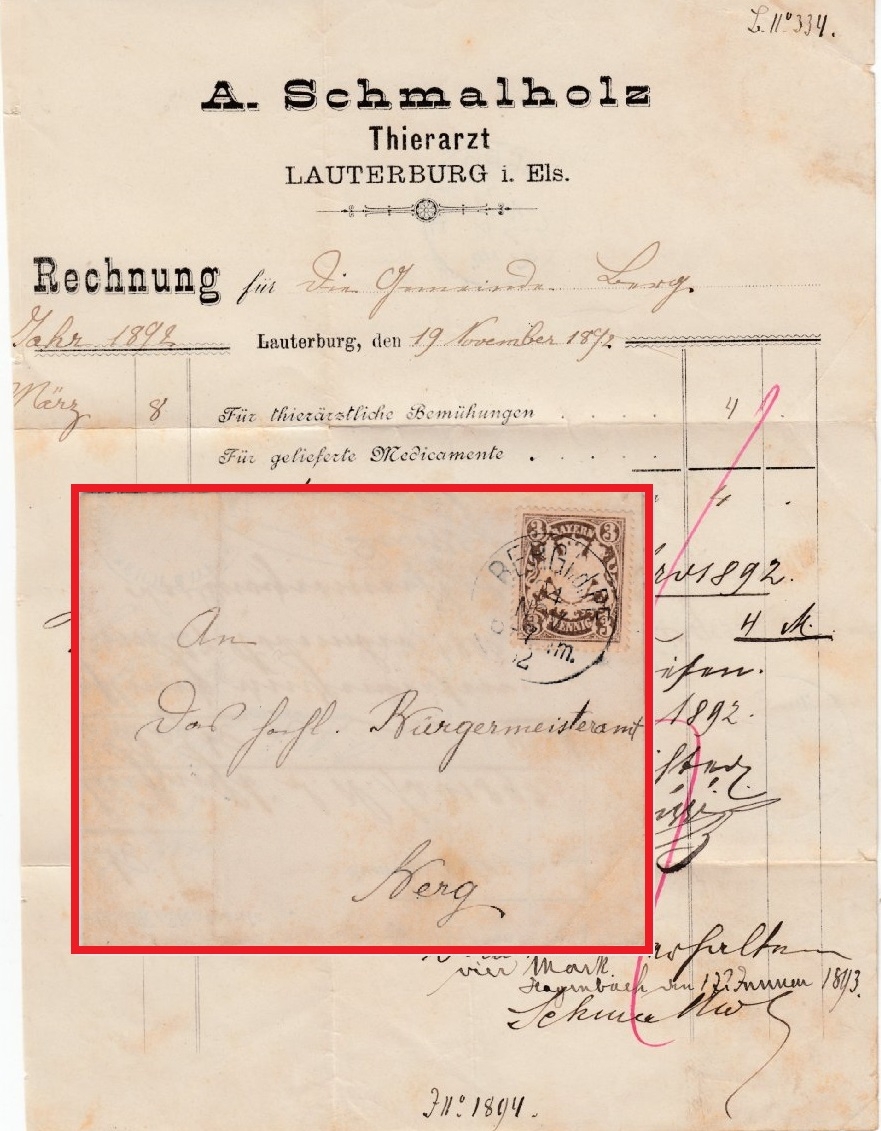 L. No 334.
A. Schmalholz
Thierarzt
LAUTERBURG i. Els.
Rechnung für die Gemeinde Berg.
Jahr 1892
Lauterburg, den 19 November 1892
März 8 Für thierärztliche Bemühungen . . . . . 4 .
Für gelieferte Medicamente . . . . .
4 .
1892.
4 M.
1892.
3 BAYERN 3
3 PFENNIG 3
An
Das hochl. Bürgermeisteramt
Berg
erhalten
vier Mark.
Hagenbach den 12 Januar 1893.
Schmalholz
JNo 1894.